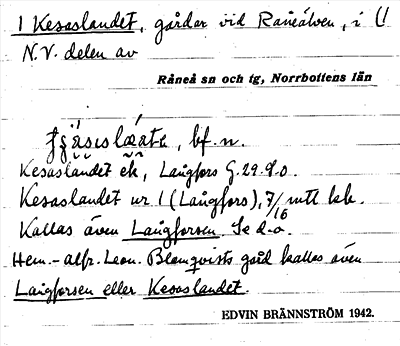 1 Kesaslandet, gårdar vid Råneälven, i
N.V. delen av
Råneå sn och tg, Norrbottens län
bf. n.
Kesaslandet ek, Långfors G.29.
Kesaslandet nr 1 (Långfors), 7/16 mtl
Kallas även Långforsen. Se d.o.
Hem.-alfr. Leon. Blomqvists gård kallas även
Långforsen eller Kesaslandet.
EDVIN BRÄNNSTRÖM 1942.